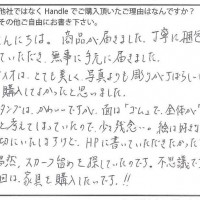 他社ではなく Handle でご購入頂いたご理由はなんですか？
その他ご自由にお書き下さい。
んにちは。商品が届きました。丁寧に梱包
ていただき、無事に手元に届きました。
は、とても美しく、写真よりも彫りが
購入してよかったと思いました。
ンプは、かわいいですが、面は
と考えてしまっていたので、少々残念… 絵は好きな
切にいたしますけど、HPに書いていただきたかった
然、スカーフ留めを探していたのです。不思議です
回は、家具を購入したいです!!